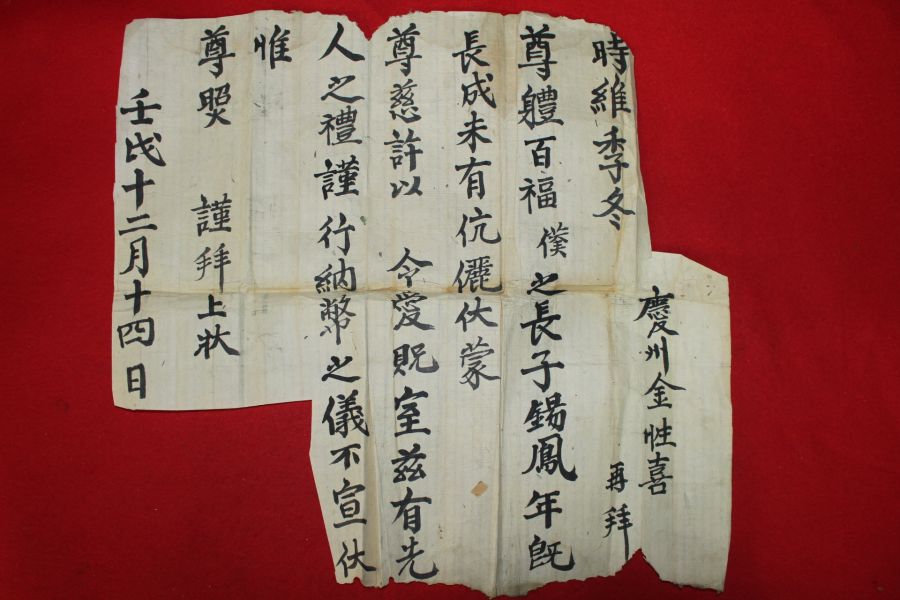 慶州金性喜
再拜
時維季冬
尊軆百福 僕之長子錫鳳年旣
長成未有伉儷伏蒙
尊慈許以 令愛貺室玆有先
人之禮謹行納幣之儀不宣伏
惟
尊照 謹拜上狀
壬戌十二月十四日